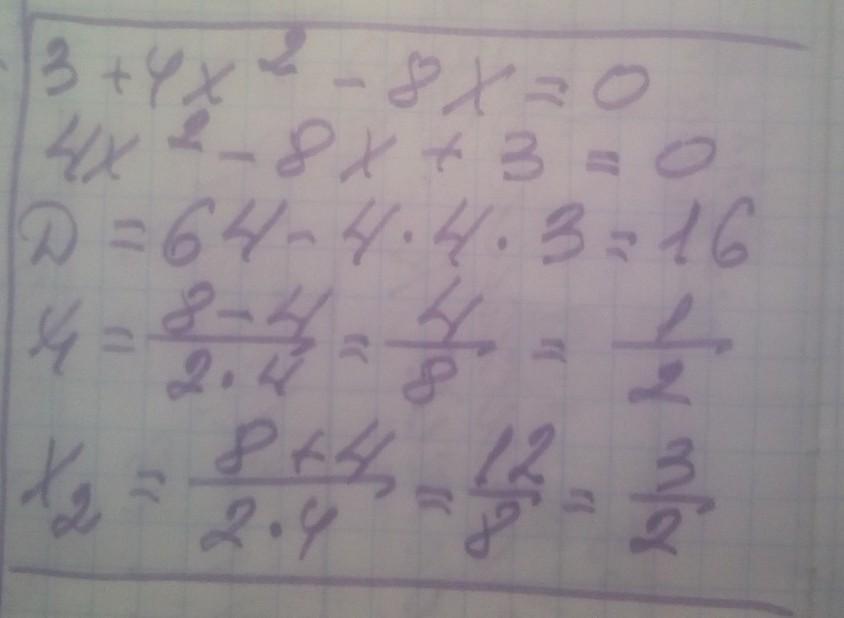 3 + 4x² - 8x = 0
4x² - 8x + 3 = 0
D = 64 - 4·4·3 = 16
x₁ = (8-4)/(2·4) = 4/8 = 1/2
x₂ = (8+4)/(2·4) = 12/8 = 3/2